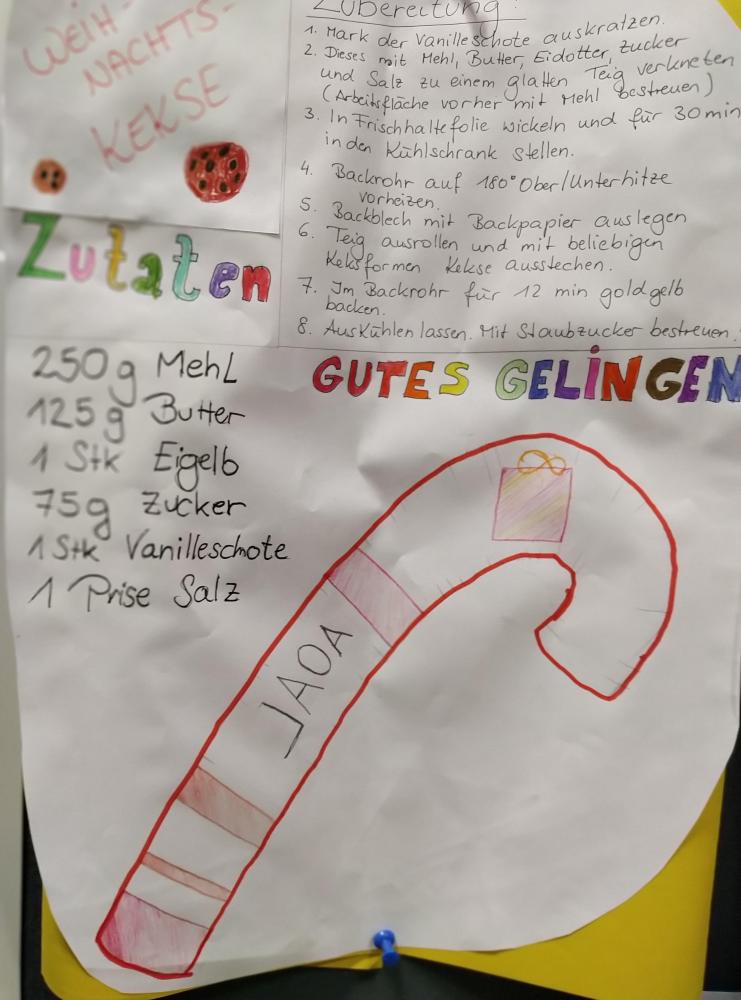 WEIH-
NACHTS-
KEKSE
Zubereitung:
1. Mark der Vanilleschote auskratzen.
2. Dieses mit Mehl, Butter, Eidotter, Zucker
und Salz zu einem glatten Teig verkneten
(Arbeitsfläche vorher mit Mehl bestreuen)
3. In Frischhaltefolie wickeln und für 30min
in den Kühlschrank stellen.
4. Backrohr auf 180° Ober/Unterhitze
vorheizen.
5. Backblech mit Backpapier auslegen
6. Teig ausrollen und mit beliebigen
Keksformen Kekse ausstechen.
7. Im Backrohr für 12 min goldgelb
backen.
8. Auskühlen lassen. Mit Staubzucker bestreuen.
Zutaten
250g Mehl
125g Butter
1 Stk Eigelb
75g Zucker
1 Stk Vanilleschote
1 Prise Salz
GUTES GELINGEN